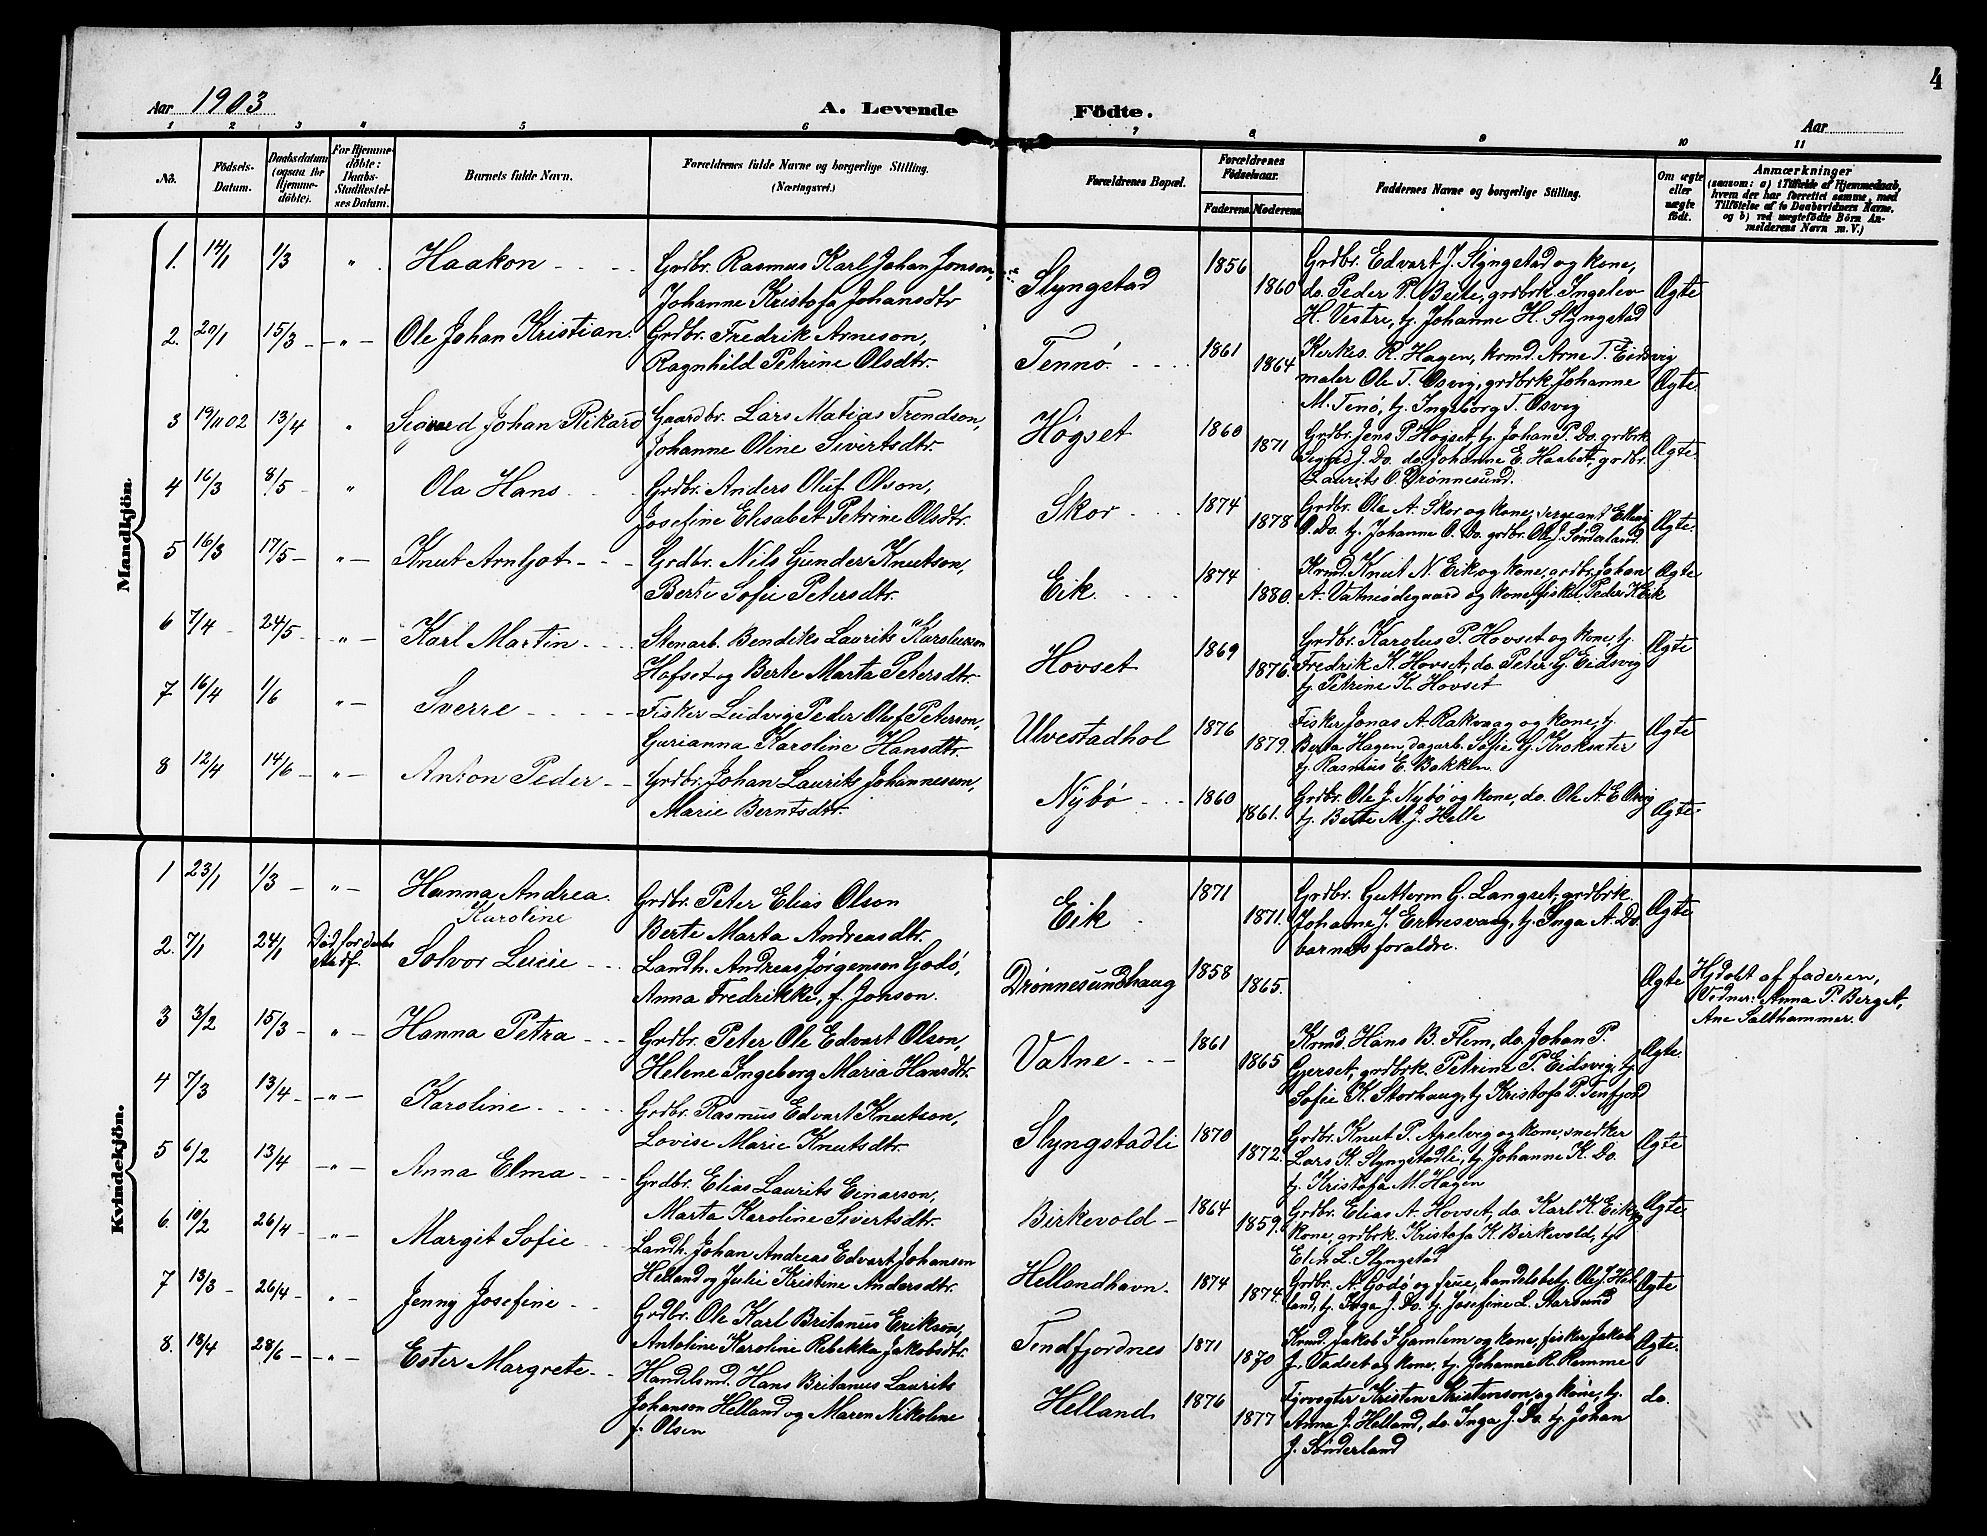 4
Aar 1903
A. Levende Födte.
Aar
1 2 3 4 5 6 7 8 9 10 11
No.
Födsels-Datum.
Daabsdatum (ogsaa for Hjemmedöbte).
For Hjemmedöbte: Daabs-Stadfæstelses Datum.
Barnets fulde Navn.
Forældrenes fulde Navne og borgerlige Stilling. (Næringsvei.)
Forældrenes Bopæl.
Forældrenes Födselsaar.
Faderens. Moderens.
Faddernes Navne og borgerlige Stilling.
Om ægte eller uægte födt.
Anmærkninger
(saasom: a) i Tilfælde af Hjemmedaab, hvem der har forrettet samme, med Tilföielse af to Daabsvidners Navne, og b) ved uægtefödte Börn Anmelderens Navn m. V.)
Mandkjön.
1. 14/1 1/3 " Haakon
Grdbr. Rasmus Karl Johan Jonson,
Johanne Kristofa Johansdtr
Slyngstad 1856 1860
Grdbr. Edvart J. Slyngstad og kone,
do. Peder P. Beite, grdbrk Ingelev
H. Vestre, tj. Johanne H. Slyngstad
Ægte
2. 20/1 15/3 " Ole Johan Kristian.
Grdbr. Fredrik Arneson,
Ragnhild Petrine Olsdtr.
Tennø. 1861 1864
Kirkes. R. Hagen, krmd. Arne T. Eidsvig
maler Ole T. Osvig, grdbrk Johanne
M. Tenø, tj. Ingeborg T. Osvig
Ægte
3 19/11 02 13/4 " Sigvard Johan Rikard
Gaardbr. Lars Matias Trondson,
Johanne Oline Sivertsdtr.
Høgset 1860 1871
Grdbr. Jens P. Høgset, tj. Johan P. Do. grdbrk
Sigrid J. Do. do. Johanne E. Haabet, grdbr.
Laurits O. Drønnesund.
Ægte.
4 16/3 8/5 " Ola Hans
Grdbr. Anders Oluf Olson,
Josefine Elisabet Petrine Olsdtr.
Skor 1874 1878
Grdbr. Ole A. Skor og kone, sergeant Elling
O. Do. tj. Johanne O. Do. grdbr. Ole J. Sønderland.
Ægte.
5 16/3 17/5 " Knut Arnljot
Grdbr. Nils Gunder Knutson,
Berte Sofie Petersdtr.
Eik 1874 1880.
Krmd. Knut N. Eik og kone, grdbr. Johan
A. Vatnødegaard og kone, fisker Peder K. Eik
Ægte
6 7/4 24/5 " Karl Martin
Stenarb. Bendiks Laurits Karoluson
Hofset og Berte Marta Petersdtr.
Hovset 1869 1876.
Grdbr. Karolus P. Hovset og kone, tj.
Fredrik K. Hovset, do. Peter G. Eidsvig
tj. Petrine K. Hovset
Ægte
7 16/4 1/6 " Sverre
Fisker Ludvig Peder Oluf Peterson,
Gurianna Karoline Hansdtr.
Ulvestadhol 1876 1879.
Fisker Jonas A. Rakvaag og kone, tj.
Berta Hagen, dagarb. Sofie G. Kroksæter
tj. Rasmus E. Bakken.
Ægte
8 12/4 14/6 " Anton Peder
Grdbr. Johan Laurits Johanneson,
Marie Berntsdtr.
Nybø 1860 1861.
Grdbr. Ole J. Nybø og kone, do. Ole A. E. Osvig
tj. Berte M. J. Helle
Ægte
Kvindekjön.
1 23/1 1/3 " Hanna Andrea Karoline
Grdbr. Peter Elias Olson
Berte Marta Andreasdtr.
Eik 1871 1871.
Grdbr. Guttorm G. Langset, grdbrk.
Johanne J. Ertnesvaag, tj. Inga A. Do.
barnets foraldre.
Ægte
2. 7/1 24/1 Död for daabs stadf. Solvor Lucie
Landh. Andreas Jørgenson Godø,
Anna Fredrikke, f. Jonson.
Drønnesundhaug 1858 1865.
Ægte
Hjdøbt af faderen,
Vidner: Anna P. Berget,
Ane Salthammer.
3 3/2 15/3 " Hanna Petra
Grdbr. Peter Ole Edvart Olson,
Helene Ingeborg Maria Hansdtr.
Vatne 1861 1865
Krmd. Hans B. Flem, do. Johan P.
Gjerset, grdbrk. Petrine P. Eidsvig, tj.
Sofie K. Storhaug, tj. Kristofa P. Tenfjord
Ægte.
4 7/3 13/4 " Karoline
Grdbr. Rasmus Edvart Knutson,
Lovise Marie Knutsdtr.
Slyngstadli 1870 1872.
Grdbr. Knut P. Apelvig og kone, snedker
Lars K. Slyngstadli, tj. Johanne K. Do.
tj. Kristofa M. Hagen
Ægte
5 6/2 13/4 " Anna Elma
Grdbr. Elias Laurits Einarson,
Marta Karoline Sivertsdtr.
Birkevold 1864 1859.
Grdbr. Elias A. Hovset, do. Karl K. Eik og
kone, grdbrk Kristofa K. Birkevold, tj.
Elen L. Slyngstad
Ægte.
6. 10/2 26/4 " Margit Sofie
Landh. Johan Andreas Edvart Johansen
Helland og Julie Kristine Andersdtr.
Hellandhavn. 1874 1874.
Grdbr. A. Godø og frue, handelsbetj. Ole J. Helland, tj. Inga J. Do. tj. Josefine L. Starsund
Ægte
7 13/3 26/4 " Jenny Josefine
Grdbr. Ole Karl Britanus Erikson,
Antoline Karoline Rebekka Jakobsdtr.
Tendfjordnes 1871 1870
Krmd. Jakob I. Gamlem og kone, fisker Jakob
J. Vadset og kone, tj. Johanne R. Ramme
Ægte.
8. 18/4 28/6 " Ester Margrete
Handelsmd. Hans Britanus Laurits
Johanson Helland og Maren Nikoline
f. Olsen
Helland 1876 1877
Fyrvogter Kristen Kristenson og kone, tj.
Anna J. Helland, do. Inga J. Do. tj. Johan
J. Sønderland
do.